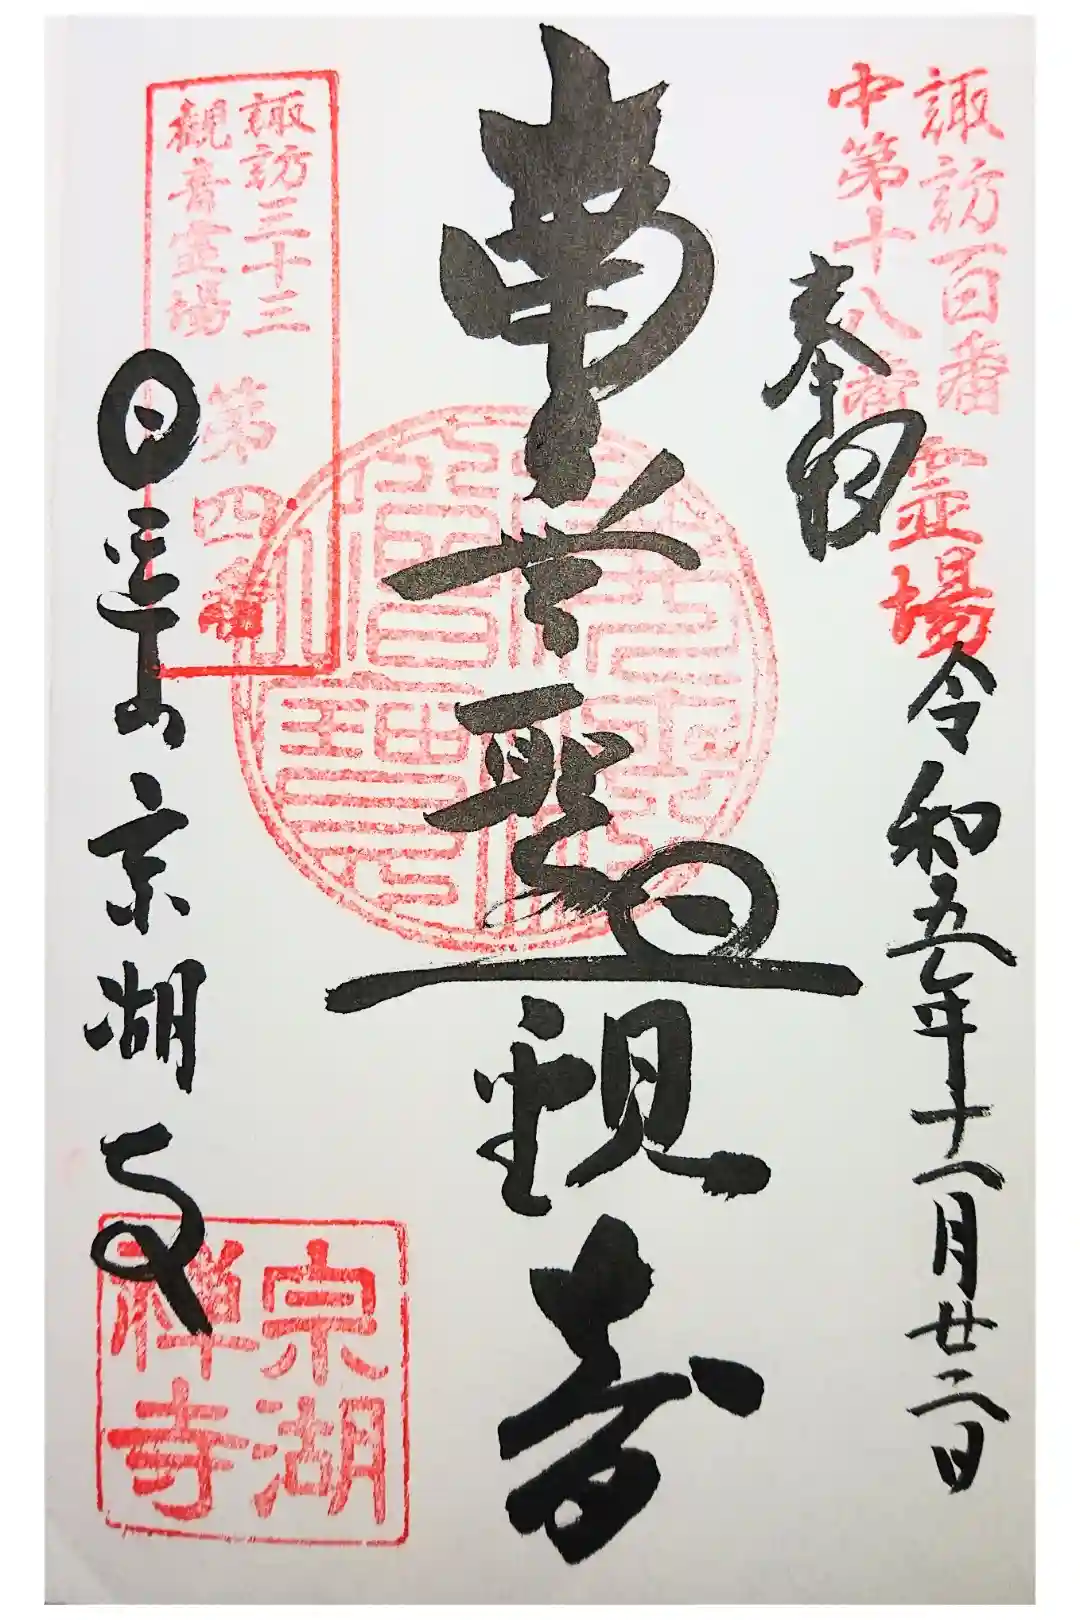 諏訪百番霊場
中第十八番
奉拝
令和五年十一月廿二日
南無聖観音
諏訪三十三
観音霊場
第四番
山宗湖寺
宗湖
禅寺